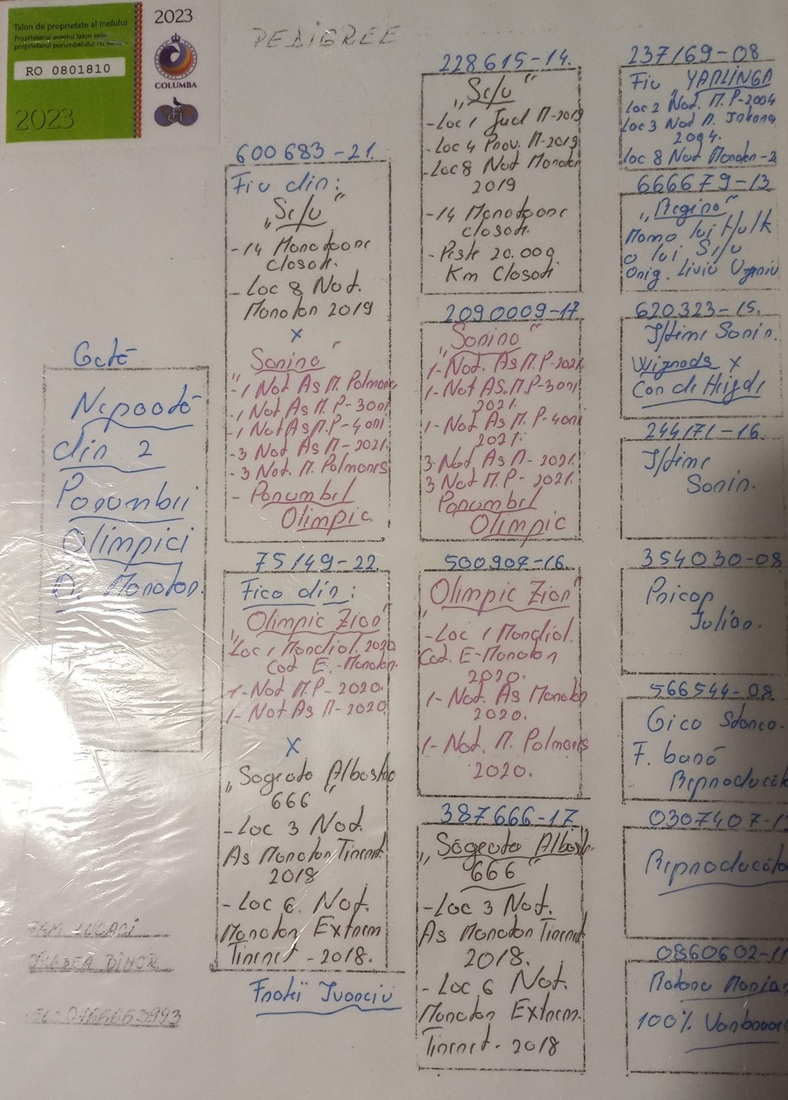 Talon de proprietate al melului
Proprietarul acestui talon este
proprietarul porumbelului cu
RO 0801810
2023
2023
COLUMBA
PEDIGREE
Gotă
Nepoată
din 2
Porumbii
Olimpici
Maraton.
600683-21.
Fiu din:
"Silu"
-14 Maratoane
Closat.
-Loc 8 Naț.
Maraton 2019
x
"Sonina"
-1 Naț As M. Palmares
-1 Naț As M.P-3 ani
-1 Naț As M.P-4 ani
-3 Naț As M-2021.
-3 Naț M. Palmares
- Porumbel
Olimpic
75149-22.
Fica din:
"Olimpic Zior"
Loc 1 Mondial. 2020
Cat E.-Maraton.
1-Naț M.P-2020.
1-Naț As M-2020
x
"Sageata Albastra
666"
-Loc 3 Naț.
As Maraton Tineret
2018
-Loc 6 Naț.
Maraton Extrem
Tineret-2018.
Frații Ivanciu
228615-14.
"Silu"
-Loc 1 Jud M-2019
-Loc 4 Prov. M-2019
-Loc 8 Naț Maraton
2019
-14 Maratoane
closat.
-Peste 20.000
Km Closat.
2090009-17
"Sonina"
1-Naț. As M.P-2021.
1-Naț AS.M.P-3 ani
2021.
1-Naț As M.P-4 ani
2021.
3-Naț As M-2021.
3 Naț M.P-2021.
Porumbel
Olimpic
500907-16.
"Olimpic Zior"
-Loc 1 Mondial.
Cat. E-Maraton
2020.
1-Naț. As Maraton
2020.
1-Naț. M. Palmares
2020.
387666-17
"Sageata Albast.
666"
-Loc 3 Naț.
As Maraton Tineret
2018.
-Loc 6 Naț.
Maraton Extrem.
Tineret-2018
237169-08
Fiu YARLINGA
Loc 2 Naț. M.P-2004
Loc 3 Naț M.
2004.
Loc 8 Naț Maraton-2
666679-13
"Regina"
Mama lui Hulk
a lui Silu
Orig. Liviu
620323-15.
Iftimi Sorin.
x
244171-16.
Iftimi
Sorin.
354030-08
Pricop
Iulian.
566544-08.
Gica Stanca.
F. bună
Reproducăt
0307407-1
Reproducăto
0860602-11
100%
FAM LUCACI
ORADEA BIHOR
0766663993